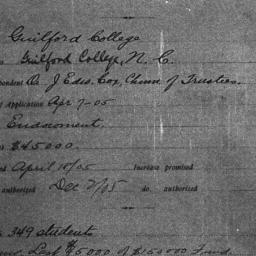 Guilford College
Guilford College, N. C.
pondent Dr. J Edw. Cox, Chmn of Trustees.
of Application Apr 7-05
Endowment.
$45000.
April 10/05 Increase promised
authorized Dec 2/05 do. authorized
349 students
Last $5000 of $150000 Fund.